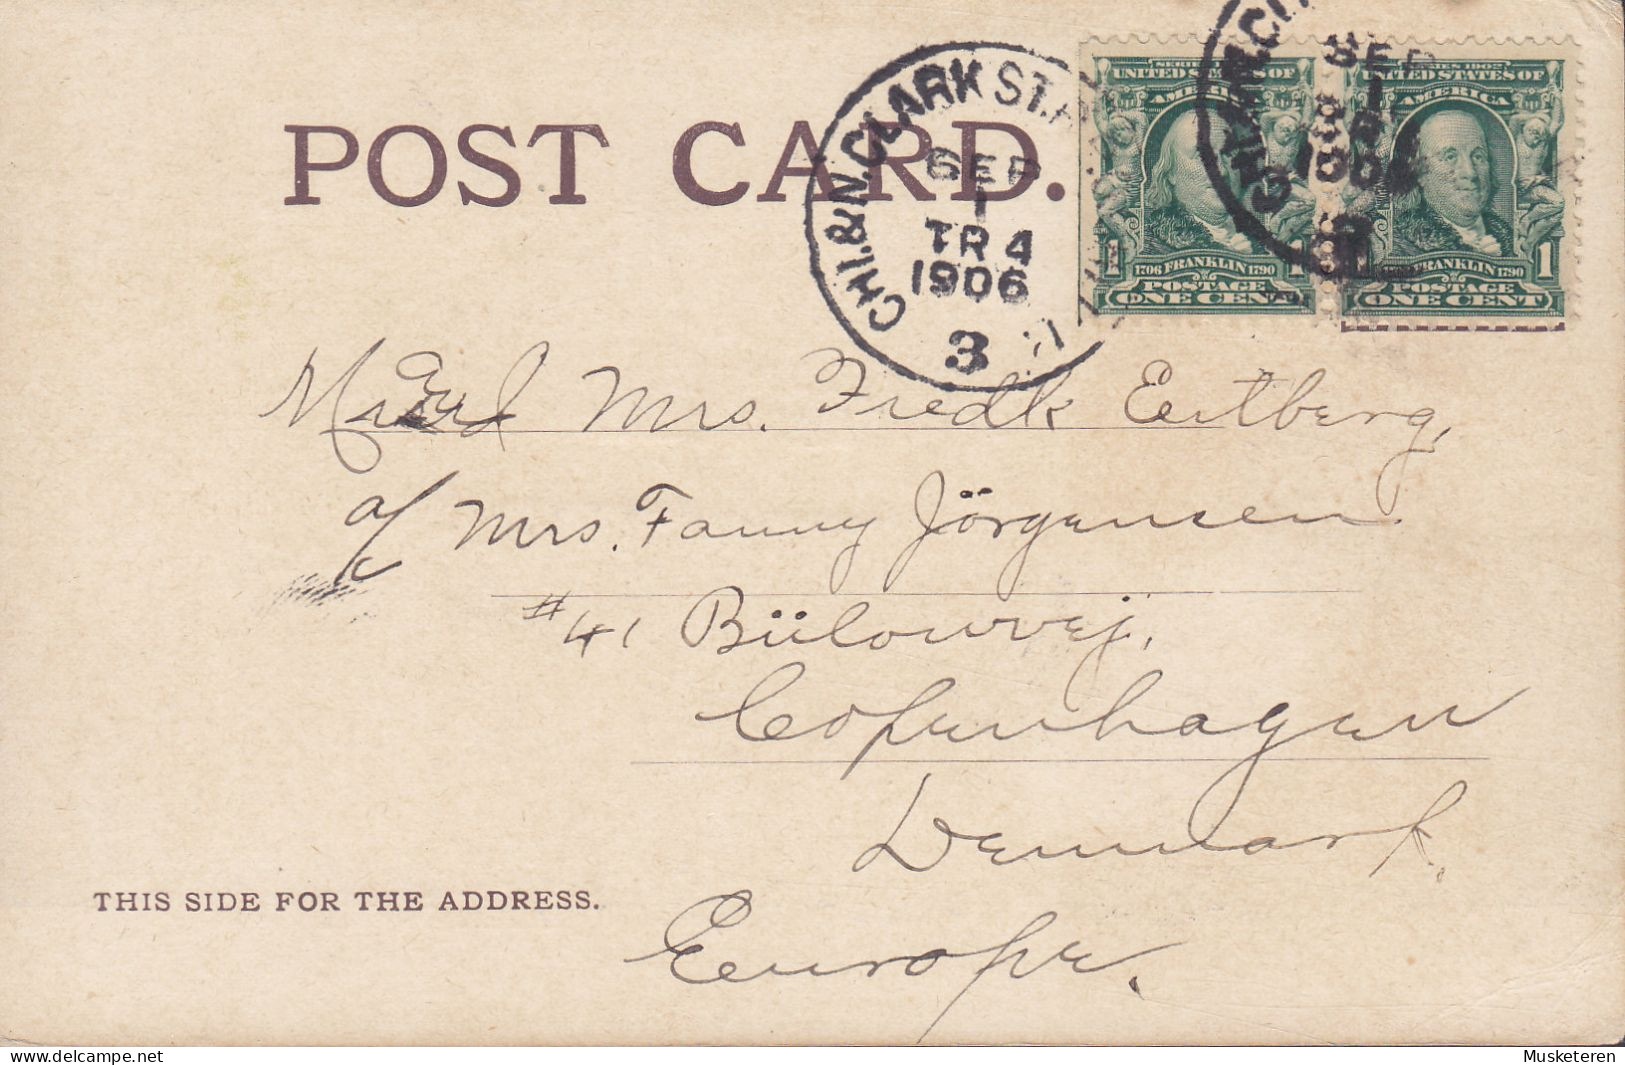 POST CARD.
CHI.&N.CLARK ST.
SEP
1
TR 4
1906
3
SERIES 1902
UNITED STATES OF
AMERICA
1706 FRANKLIN 1790
1 1
POSTAGE
ONE CENT
SEP
1
1906
3
SERIES 1902
UNITED STATES OF
AMERICA
FRANKLIN 1790
1
POSTAGE
ONE CENT
Mr and Mrs. Fredk Eertberg,
c/o Mrs. Fanny Jörgensen.
#41 Bülowvej,
Copenhagen
Denmark.
Europe.
THIS SIDE FOR THE ADDRESS.
Musketeren